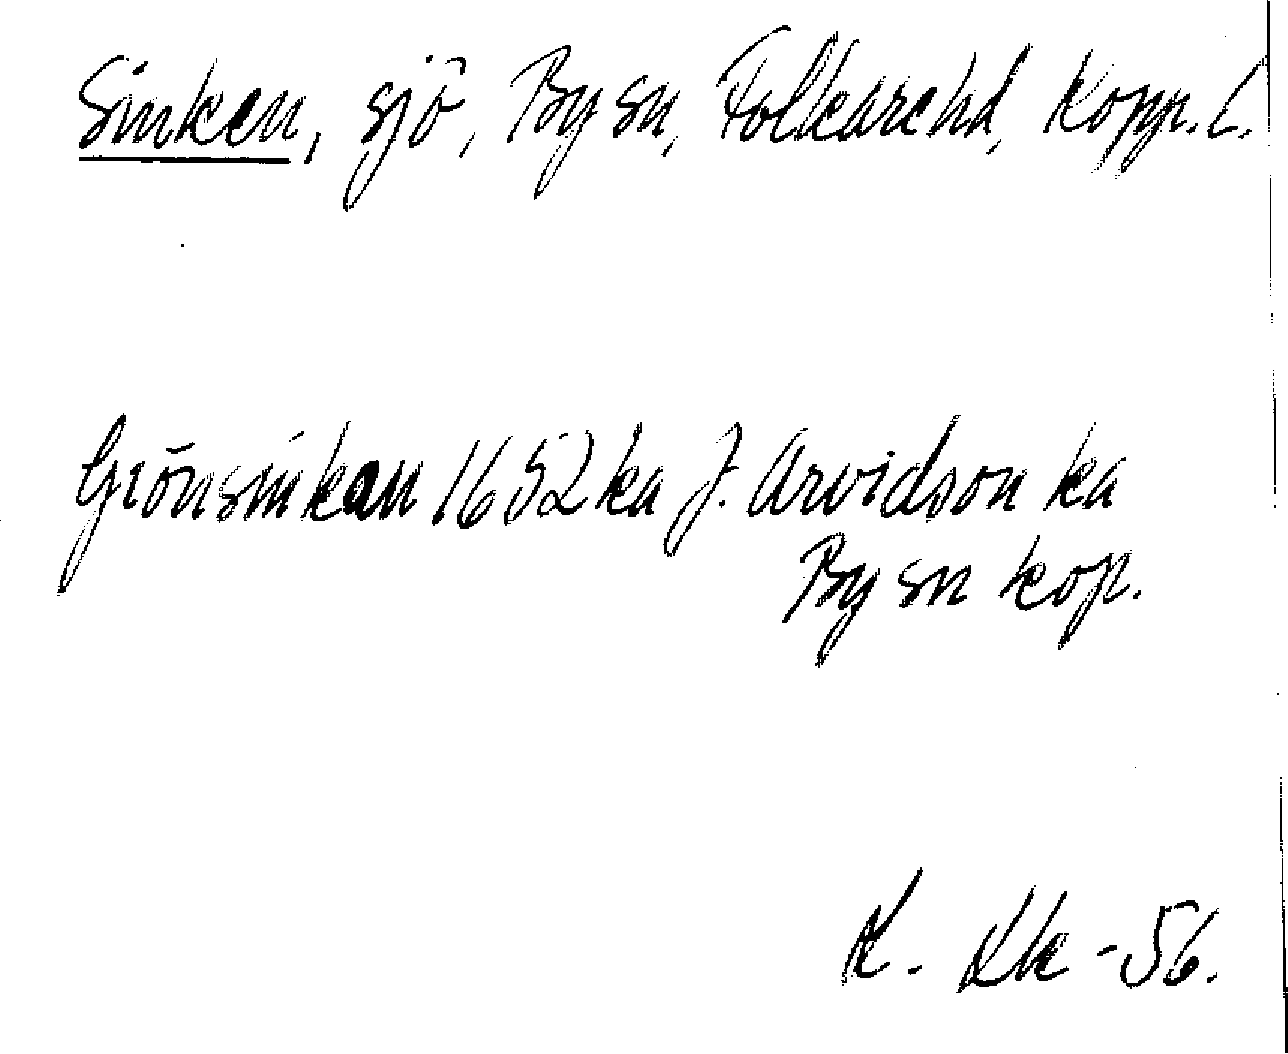 Sinken, sjö, By sn, Folkare hd, Kopp. l.
Grönsinkan 1652 ka J. Arvidson ka
By sn kop.
K. -56.